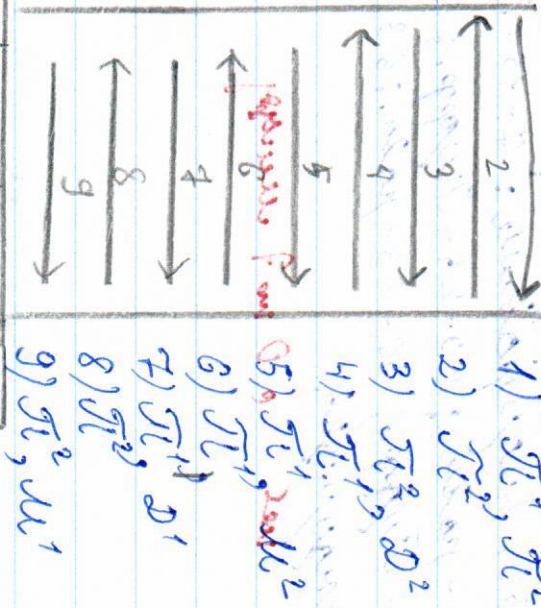 2
3
4
5
6
7
8
9
1) П¹, П²
2) П²,
3) П², Д²
4) П¹,
5) П¹, М²
6) П¹,
7) П¹, Д¹
8) П²,
9) П², М¹